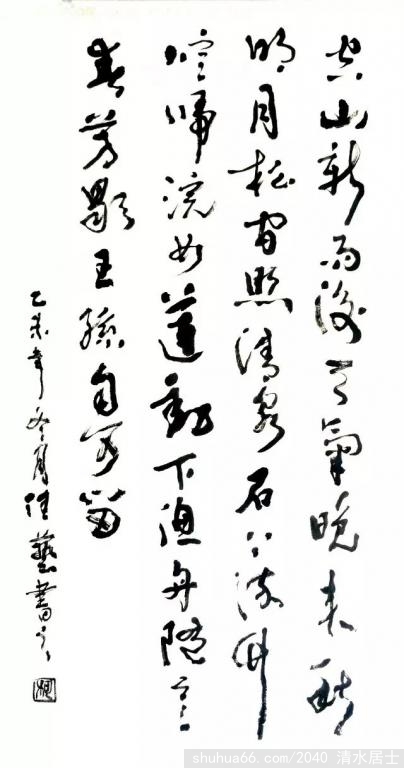 空山新雨後天氣晚来秋
明月松間照清泉石上流竹
喧歸浣女蓮動下漁舟隨意
春芳歇王孫自可留
乙未年冬月藝書
shuhua66.com/2040 清水居士